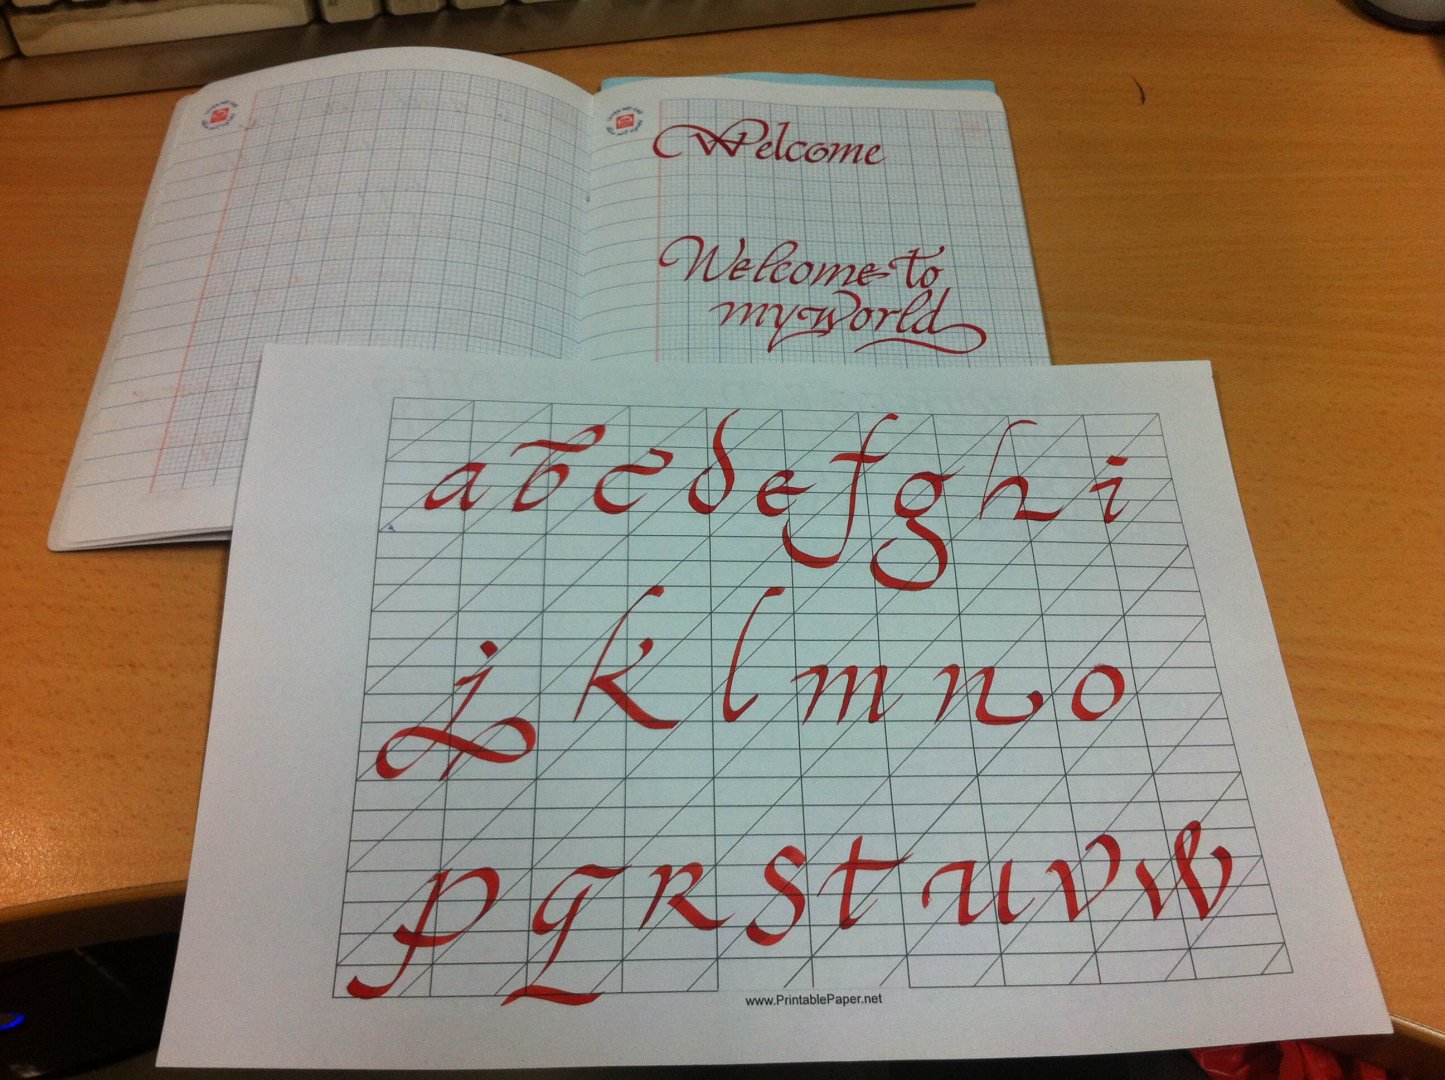 Welcome
Welcome to
my world
a b c d e f g h i
j k l m n o
p q r s t u v w
www.PrintablePaper.net